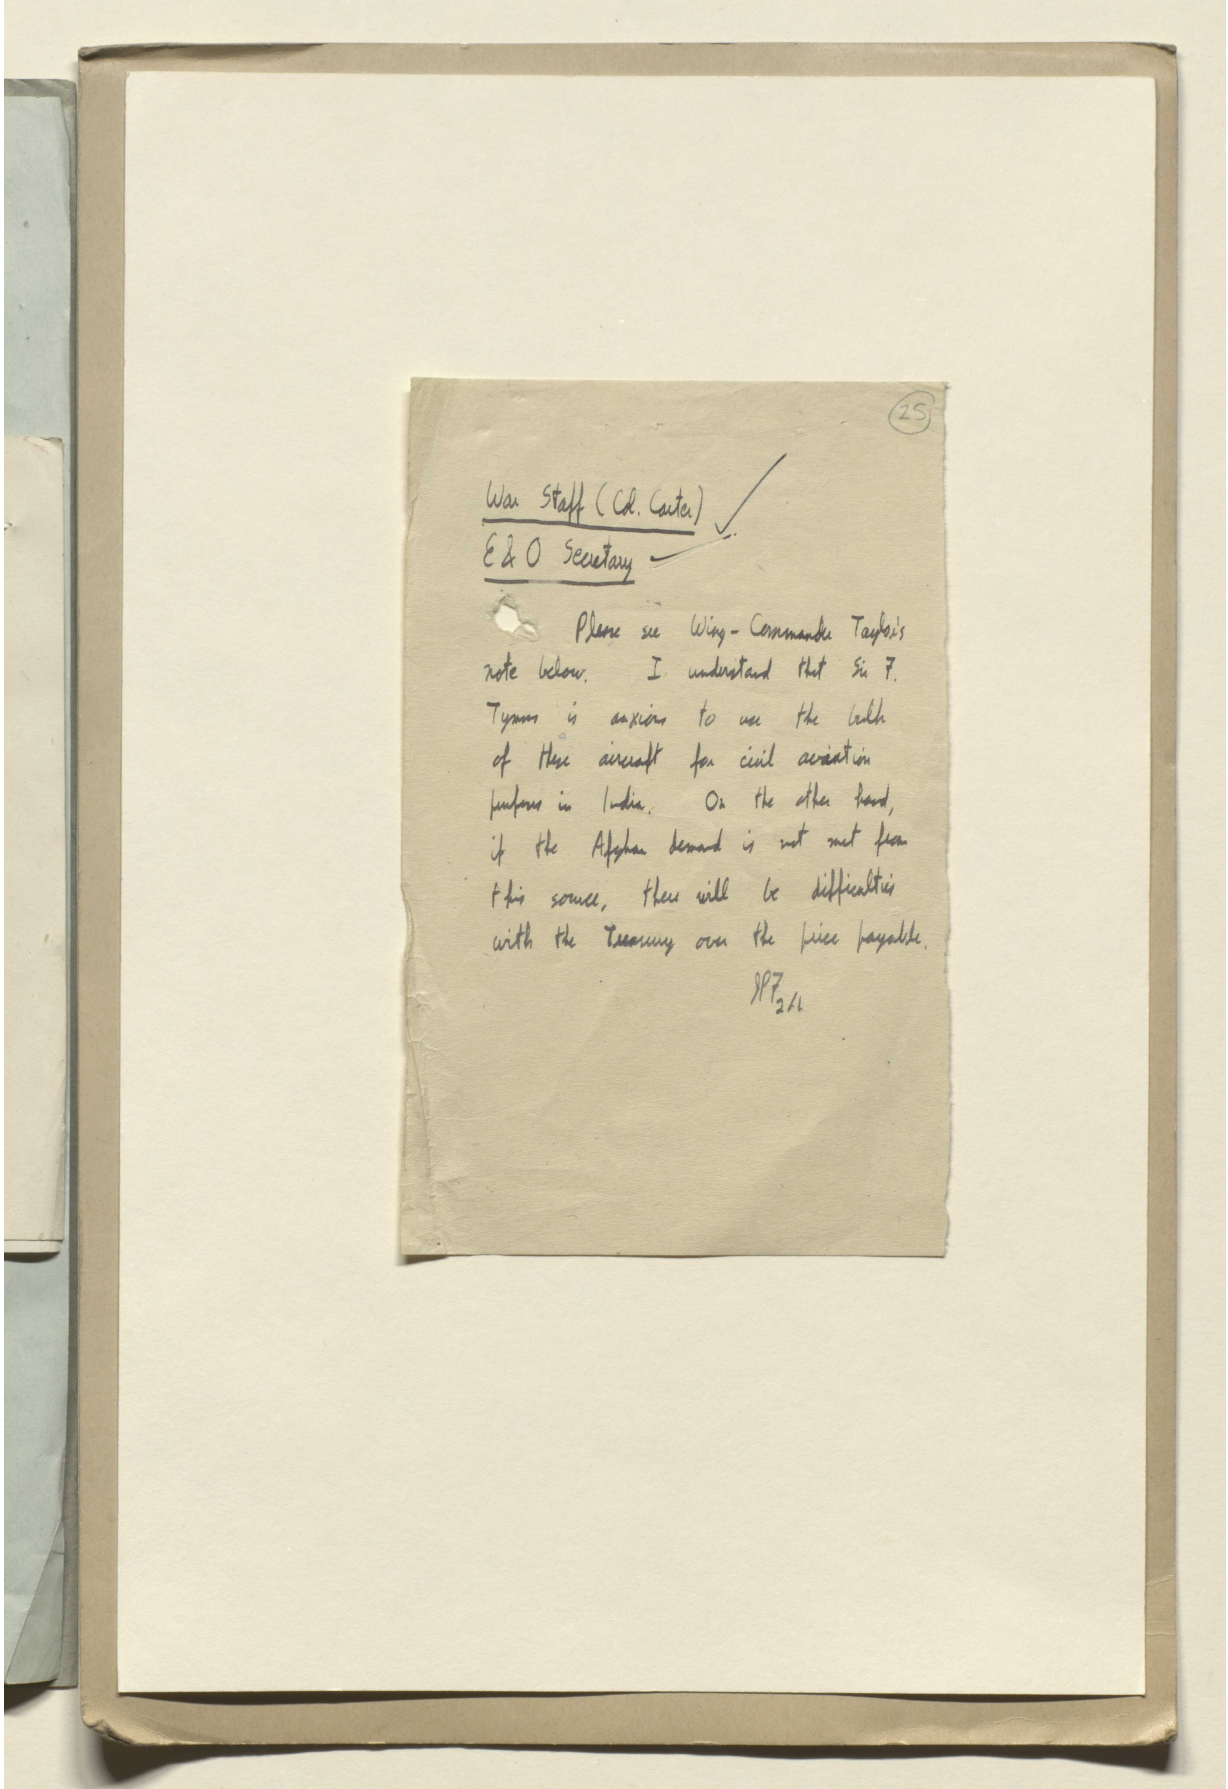 25
War Staff (Col. Carter)
E & O Secretary
Please see Wing-Commander Taylor's
note below. I understand that Sir F.
Tymms is anxious to use the bulk
of these aircraft for civil aviation
purposes in India. On the other hand,
if the Afghan demand is not met from
this source, there will be difficulties
with the Treasury over the price payable.